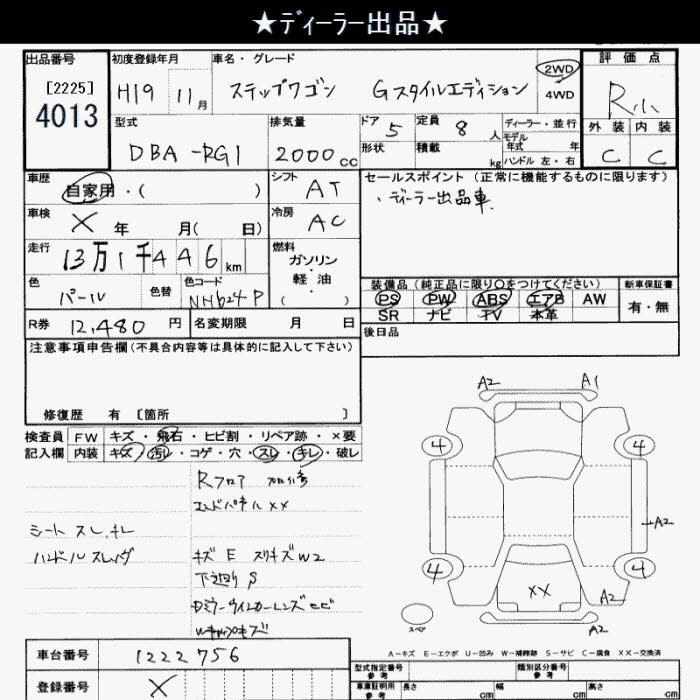 ★ディーラー出品★
出品番号 初度登録年月 車名・グレード
[2225]
4013
H19 11月
ステップワゴン Gスタイルエディション
2WD
4WD
評価点
R
外装 内装
C C
型式 排気量 ドア 定員
DBA-RG1 2000cc 5 8人
形状 積載 kg
ディーラー・並行
モデル
年式 年
ハンドル 左・右
車歴
自家用・( )
シフト AT
セールスポイント(正常に機能するものに限ります)
・ディーラー出品車.
車検 X 年 月( 日)
冷房 AC
走行 13万1千446km
燃料
ガソリン
・
軽油
・
( )
色 パール 色替 色コード NH624P
装備品(純正品に限り○をつけてください) 新車保証書
PS PW ABS エアB AW
SR ナビ TV 本革
有・無
R券 12,480円 名変期限 月 日
後日品
注意事項申告欄(不具合内容等は具体的に記入して下さい)
修復歴 有 [箇所 ]
検査員 FW キズ・飛石・ヒビ割・リペア跡・×要
記入欄 内装 キズ・汚レ・コゲ・穴・スレ・キレ・破レ
Rフロア
エンドパネルXX
シート スレ,キレ
ハンドルスレ
キズ E スリキズW2
下廻りS
A2 A1
4 4
A2
4 4
XX
A2
A2
スペア
A-キズ E-エクボ U-凹み W-補修跡 S-サビ C-腐食 XX-交換済
車台番号 1222756
登録番号 X
型式指定番号 参考 類別区分番号 参考
車庫証明用 参考 長さ cm 幅 cm 高さ cm